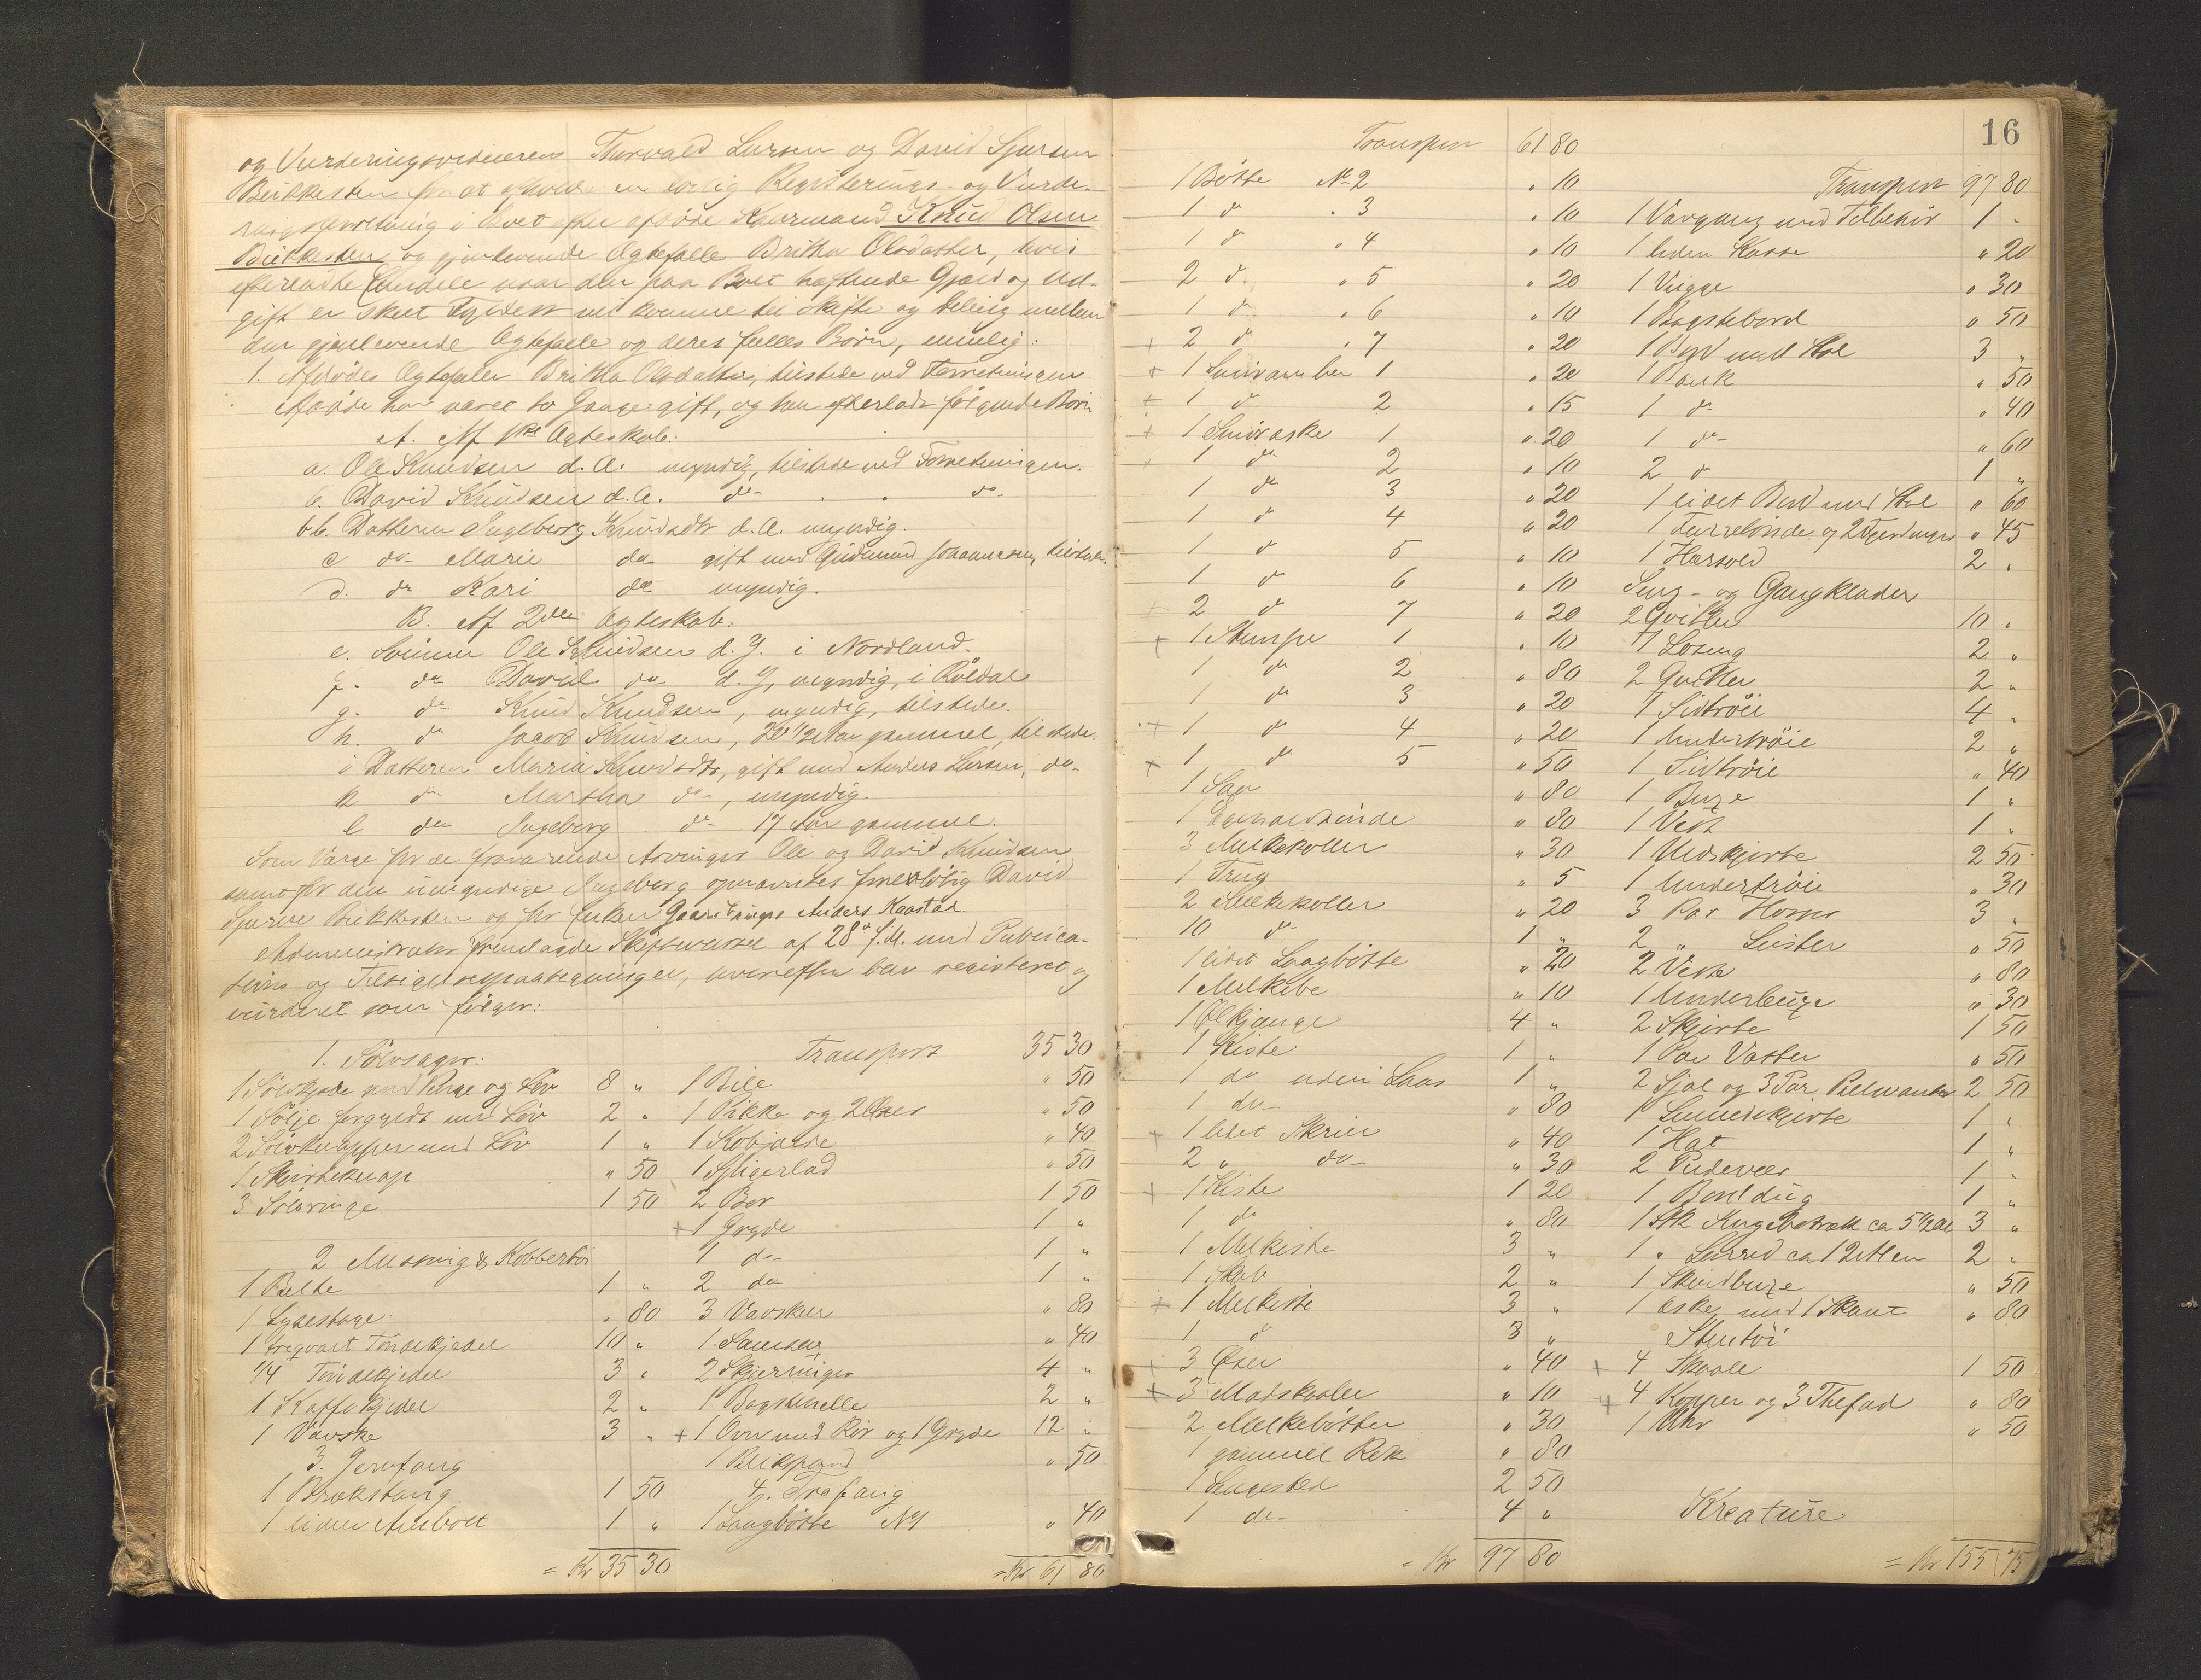 og Vurderingsvidnerne Thorvald Larsen og David Sjursen
Birkkesten for at afholde en lovlig Registrerings- og Vurde-
ringsforretning i Boet efter afdøde Kaarmand Knud Olsen
Birkkesten og gjenlevende Ægtefælle Britha Olsdatter, hvis
efterladte Eiendele naar den paa Boet hæftende Gjæld og Ud-
gift er skeet Fyldest vil komme til Skifte og Deling mellem
den gjenlevende Ægtefælle og deres fælles Børn, nemlig:
1. Afdødes Ægtefælle Britha Olsdatter, tilstede ved Forretningen
Afdøde har været to Gange gift, og han efterlader følgende Børn
A. Af 1ste Ægteskab:
a. Ole Knudsen d.Æ. myndig, tilstede ved Forretningen.
b. David Knudsen d.Æ. do do
bb. Datteren Ingeborg Knudsdtr d.Æ. myndig.
c do Marie do gift med Gudmund Johannesen, tilstede.
d. do Kari do myndig.
B. Af 2det Ægteskab:
e. Sønnen Ole Knudsen d.Y. i Nordland.
f. do David do d.Y, myndig, i Røldal
g. do Knud Knudsen, myndig, tilstede.
h. do Jacob Knudsen, 20 1/2 Aar gammel, tilstede.
i Datteren Maria Knudsdtr, gift med Anders Larsen, do
k do Martha do, myndig.
l do Ingeborg do 17 Aar gammel.
Som Værge for de fraværende Arvinger Ole og David Knudsen
samt for den umyndige Ingeborg opnævntes foreløbig David
Sjursen Birkkesten og for Enken Gaardbruger Anders Kaastad
Administrator fremlagde Skiftevarsel af 28de f.M. med Publica-
tions og Tilsigelsespaategninger, hvorefter blev registreret og
vurderet som følger:
1. Sølvsager:
1 Sølvkjede med Penge og Løv 8 "
1 Sølje forgyldt med Løv 2 "
2 Sølvknapper med Løv 1 "
1 Skjorteknap " 50
3 Sølvringe 1 50
2 Messing & Kobbertøi
1 Belte 1 "
1 Lysestage " 80
1 tregvart Tøndekjedel 10 "
1/4 Tøndekjedel 3 "
1 Kaffekjedel 2 "
1 Vævske 3 "
3. Jernfang
1 Brækstang 1 50
1 liden Ambolt 1 "
= Kr 35 30
Transport 35 30
1 Bile " 50
1 Pikke og 2 Øxer " 50
1 Kobjælde " 40
1 Sligerlad " 50
2 Bor 1 50
+ 1 Gryde 1 "
1 do 1 "
2 do 1 "
3 Vævskeer " 80
" 40
2 Skjæringer 4 "
1 Bagstehelle 2 "
+ 1 Ovn med Rør og 1 Gryde 12 "
1 Blikspand " 50
4. Træfang
1 Laagbøtte No 1 " 40
= Kr 61 80
16
Transport 61 80
1 Bøtte No 2 " 10
1 do " 3 " 10
1 do " 4 " 10
2 do " 5 " 20
1 do " 6 " 10
+ 2 do " 7 " 20
+ 1 Smøramber 1 " 20
+ 1 do 2 " 15
+ 1 Smøraske 1 " 20
+ 1 do 2 " 10
1 do 3 " 20
1 do 4 " 20
1 do 5 " 10
1 do 6 " 10
2 do 7 " 20
+ 1 Stampe 1 " 10
1 do 2 " 80
1 do 3 " 20
+ 1 do 4 " 20
+ 1 do 5 " 50
1 Saa " 80
" 80
3 Melkekoller " 30
1 Trug " 5
2 Melkekoller " 20
10 do 1 "
1 lidet Laagbøtte " 20
1 Melkebe " 10
1 Ølkjænge 4 "
1 Kiste 1 "
1 do uden Laas 1 "
1 do " 80
+ 1 lidet Skrin " 40
2 " do " 30
+ 1 Kiste 1 20
1 do " 80
1 Melkiste 3 "
1 Skab 2 "
+ 1 Melkiste 3 "
1 do 3 "
+ 3 Øxer " 40
+ 3 Madskaaler " 10
2 Melkebøtter " 30
1 gammel Rok " 80
1 Sengested 2 50
1 do 4 "
= Kr 97 80
Transport 97 80
1 Vævgang med Tilbehør 1 "
1 liden Kasse " 20
1 Vugge " 30
1 Bagstebord " 50
1 Bord med Stol 3 "
1 Bænk " 50
1 do " 40
1 do " 60
2 do 1 "
1 lidet Bord med Stol " 60
1 og 2 " 45
1 Hæsvold 2 "
Seng- og Gangklæder
2 Qvitler 10 "
1 Loseng 2 "
2 Qvitler 2 "
1 Sidtrøie 4 "
1 Undertrøie 2 "
1 Sidtrøie " 40
1 Buxe 1 "
1 Vest 1 "
1 Uldskjorte 2 50
1 Undertrøie " 30
3 Par Hoser 3 "
2 " Leister " 50
2 Veste " 80
1 Underbuxe " 30
2 Skjorte 1 50
1 Par Vatter " 50
2 Sjal og 3 Par Pulsvanter 2 50
1 Lærredskjorte 1 "
1 Hat 1 "
2 Pudevær 1 "
1 Borddug 1 "
1 Stk ca 5 1/2 Al 3 "
1 " Lærred ca 12 Alen 2 "
1 Skindbuxe " 50
1 Æske med 1 Skaut " 80
Stentøi
+ 4 Skaale 1 50
+ 4 Kopper og 3 Thefad " 80
1 Uhr " 50
Kreature
= Kr 155 75